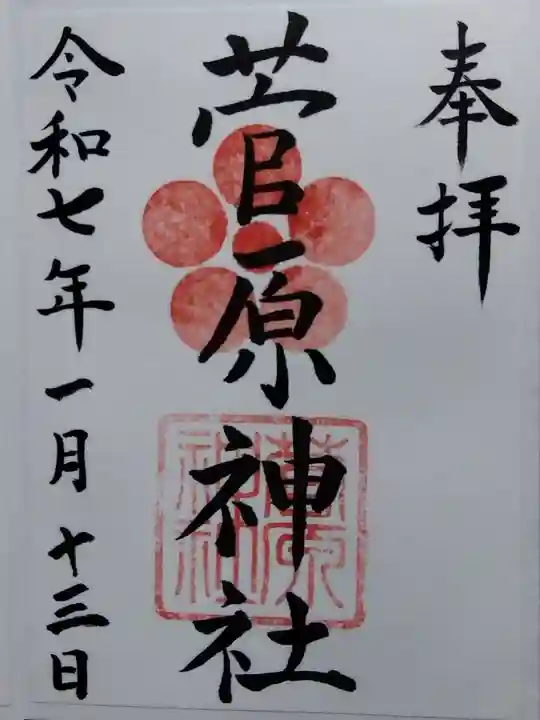 奉拝
菅原神社
令和七年一月十三日
菅原
神社